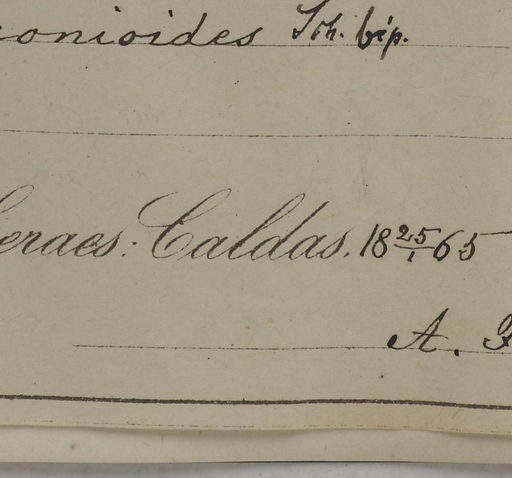 onioides Sch. bip.
Geraes: Caldas. 18 25/1 65
A.